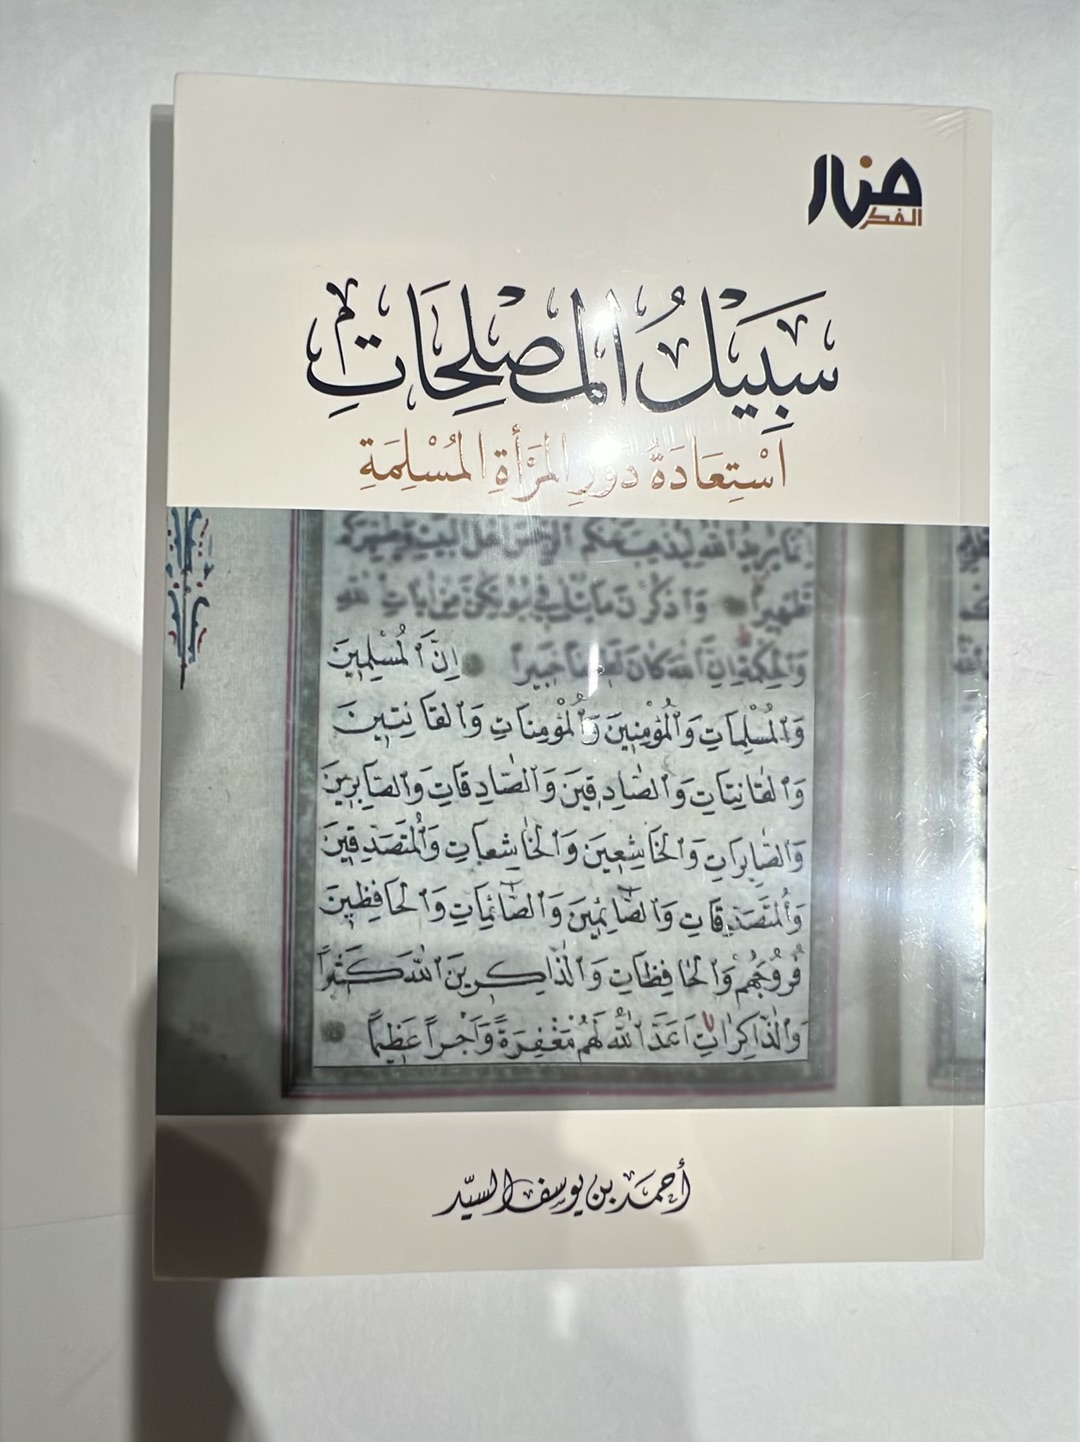 منار
الفكر
سَبِيلُ المُصْلِحَاتِ
اسْتِعَادَةُ دَوْرِ المَرْأَةِ المُسْلِمَةِ
إنما يريد الله ليذهب عنكم الرجس أهل البيت ويطهركم
تطهيرا واذكرن ما يتلى في بيوتكن من ايات الله
والحكمة إن الله كان لطيفا خبيرا إِنَّ ٱلْمُسْلِمِينَ
وَٱلْمُسْلِمَاتِ وَٱلْمُؤْمِنِينَ وَٱلْمُؤْمِنَاتِ وَٱلْقَانِتِينَ
وَٱلْقَانِتَاتِ وَٱلصَّادِقِينَ وَٱلصَّادِقَاتِ وَٱلصَّابِرِينَ
وَٱلصَّابِرَاتِ وَٱلْخَاشِعِينَ وَٱلْخَاشِعَاتِ وَٱلْمُتَصَدِّقِينَ
وَٱلْمُتَصَدِّقَاتِ وَٱلصَّائِمِينَ وَٱلصَّائِمَاتِ وَٱلْحَافِظِينَ
فُرُوجَهُمْ وَٱلْحَافِظَاتِ وَٱلذَّاكِرِينَ ٱللَّهَ كَثِيرًا
وَٱلذَّاكِرَاتِ اَعَدَّ ٱللَّهُ لَهُمْ مَغْفِرَةً وَاَجْراً عَظِيماً
أحمد بن يوسف السيّد